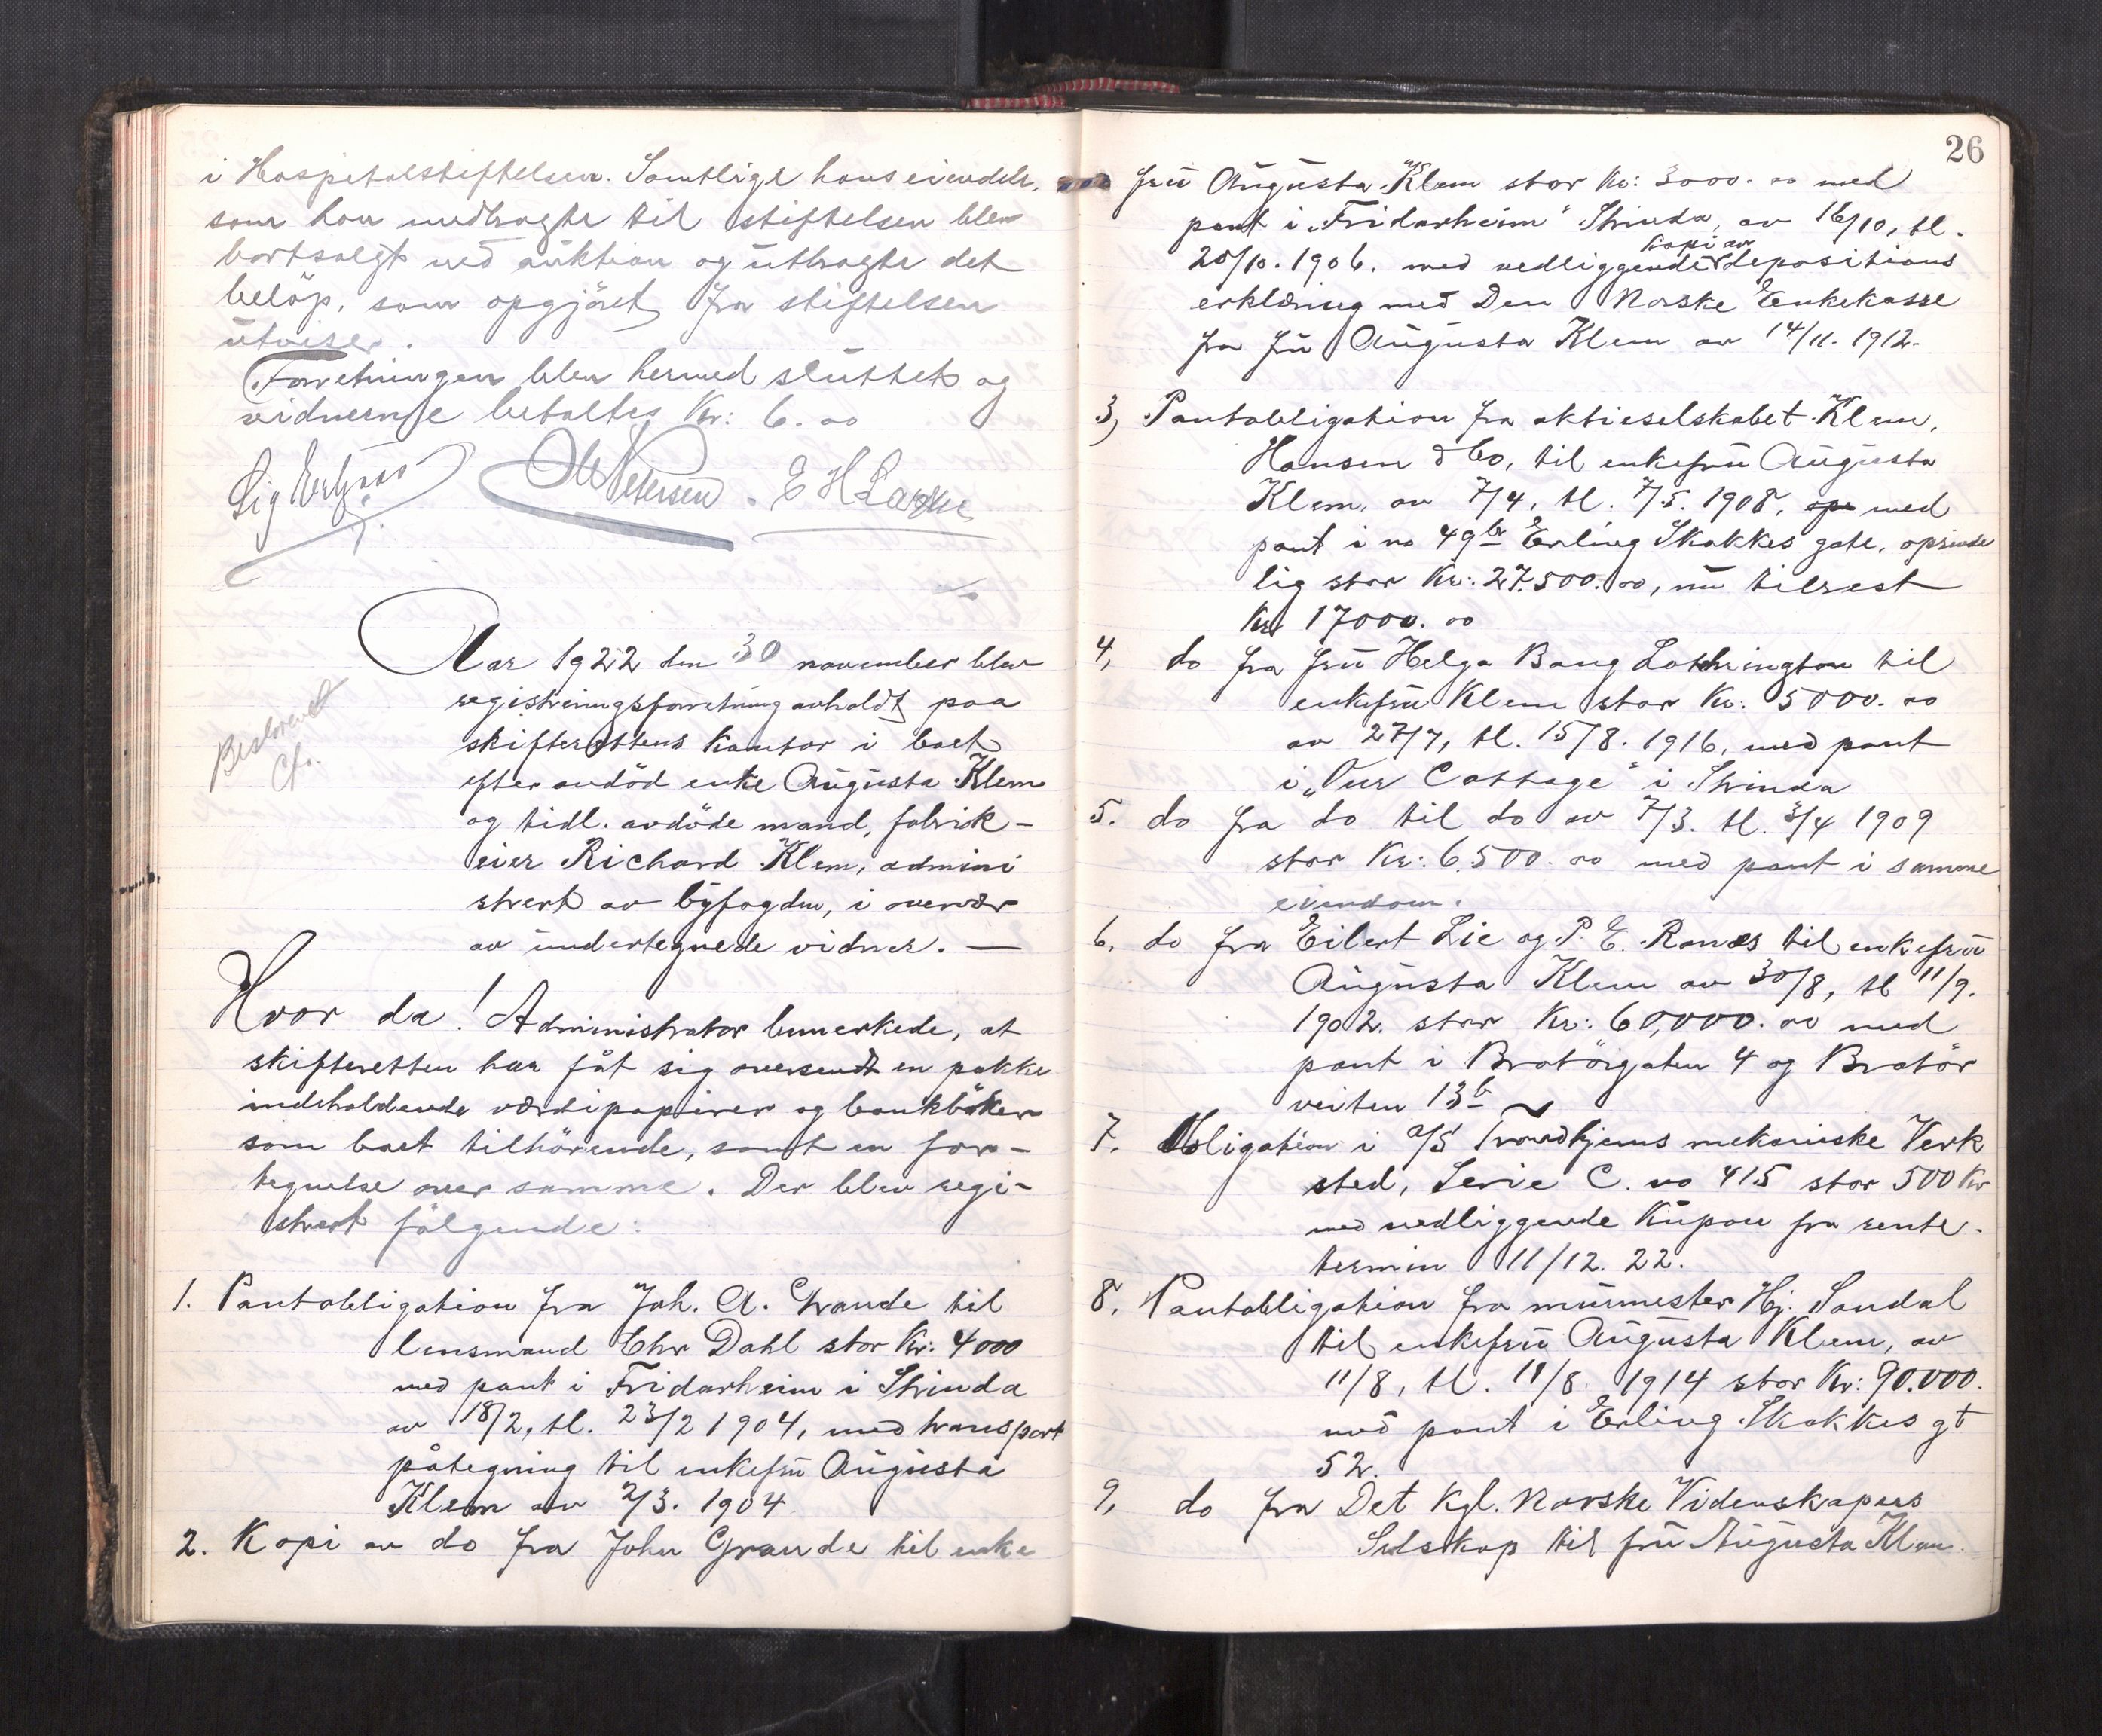 i Hospitalstiftelsen. Samtlige hans eiendele,
som han medbragte til stiftelsen blev
bortsolgt ved auktion og utbragte det
beløp, som opgjöret fra stiftelsen
utviser.
Forretningen blev hermed sluttet og
vidnerne betaltes Kr: 6.00
Petersen. E H
Aar 1922 den 30 november blev
registreringsforretning avholdt paa
skifterettens kontor i boet
efter avdöd enke Augusta Klem
og tidl. avdöde mand, fabrik-
eier Richard Klem, admini
strert av byfogden, i overvær
av undertegnede vidner. —
Beskrevet
Hvor da! Administrator bemerkede, at
skifteretten har fåt sig oversendt en pakke
indeholdende værdipapirer og bankböker
som boet tilhörende, samt en for-
tegnelse over samme. Der blev regi-
strert fölgende:
1. Pantobligation fra Joh. A. Grande til
lensmand Chr Dahl stor Kr: 4000
med pant i Fridarheim i Strinda
av 18/2, tl. 23/2 1904, med transport
påtegning til enkefru Augusta
Klem av 2/3. 1904.
2. Kopi av do fra John Grande til enke
26
fru Augusta Klem stor Kr: 3000.00 med
pant i „Fridarheim" Strinda, av 16/10, tl.
20/10. 1906. med vedliggende kopi av depositions
erklæring med Den Norske Enkekasse
fra fru Augusta Klem av 14/11. 1912.
3, Pantobligation fra aktieselskabet Klem,
Hansen & Co, til enkefru Augusta
Klem, av 7/4, tl. 7/5. 1908, med
pant i no 49b Erling Skakkes gate, oprinde
lig stor Kr: 27.500.00, nu tilrest
Kr 17000.00
4, do fra fru Helga Bang Lothrington til
enkefru Klem stor Kr: 5000.00
av 27/7, tl. 15/8. 1916, med pant
i „Our Cottage" i Strinda
5. do fra do til do av 7/3. tl. 3/4 1909
stor Kr: 6.500.00 med pant i samme
eiendom.
6, do fra Eilert Lie og P. E. Ranes til enkefru
Augusta Klem av 30/8, tl 11/9.
1902. stor Kr: 60,000.00 med
pant i Bratörgaten 4 og Bratör
veiten 13b
7. Obligation i A/S Trondhjems mekaniske Verk
sted, Serie C. no 415 stor 500 Kr
med vedliggende Kupon fra rente-
termin 11/12. 22.
8, Pantobligation fra murmester Hj. Sandal
til enkefru Augusta Klem, av
11/8, tl. 11/8 1914 stor Kr: 90.000.
med pant i Erling Skakkes gt
52.
9, do fra Det Kgl. Norske Videnskapers
Selskap til fru Augusta Klem.